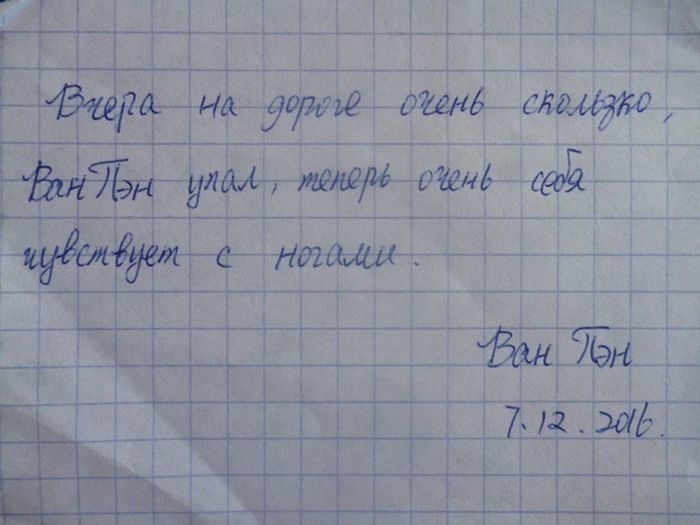 Вчера на дороге очень скользко,
Ван Пэн упал, теперь очень себя
чувствует с ногами.
Ван Пэн
7.12.2016.